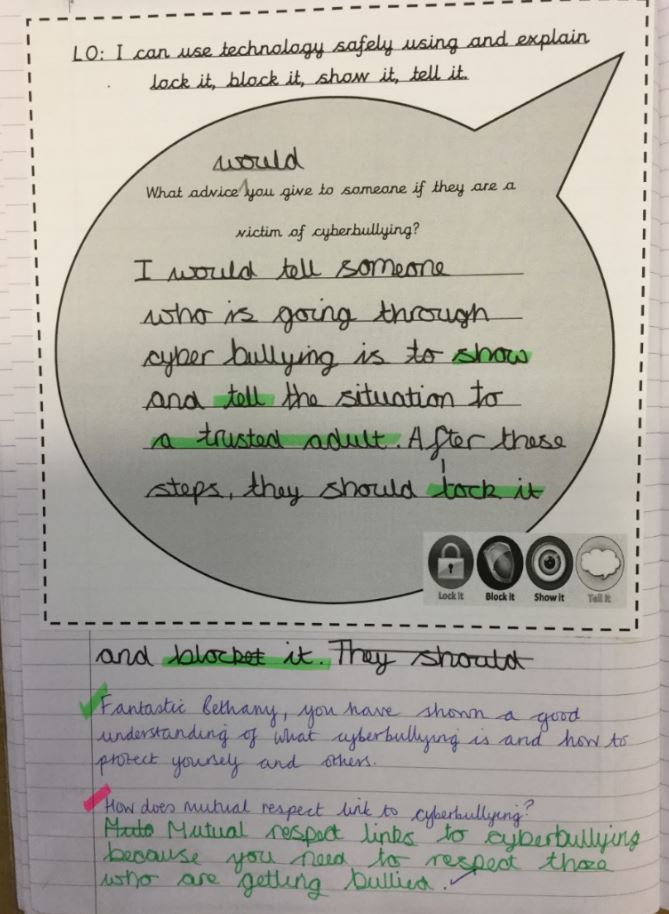 LO: I can use technology safely using and explain
lock it, block it, show it, tell it.
would
What advice you give to someone if they are a
victim of cyberbullying?
I would tell someone
who is going through
cyber bullying is to show
and tell the situation to
a trusted adult. After these
steps, they should lock it
Lock it Block it Show it Tell it
and blocket it. They should
Fantastic Bethany, you have shown a good
understanding of what cyberbullying is and how to
protect yourself and others.
How does mutual respect link to cyberbullying?
Muto Mutual respect links to cyberbullying
because you need to respect those
who are getting bullied.